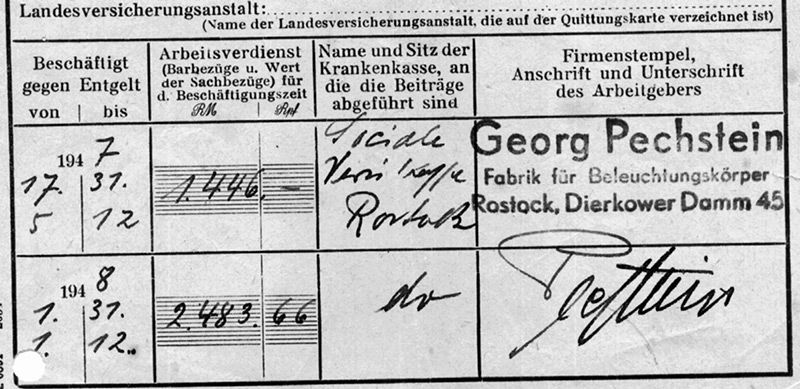 Landesversicherungsanstalt:
(Name der Landesversicherungsanstalt, die auf der Quittungskarte verzeichnet ist)
Beschäftigt
gegen Entgelt
von | bis
Arbeitsverdienst
(Barbezüge u. Wert
der Sachbezüge) für
d. Beschäftigungszeit
RM Rpf
Name und Sitz der
Krankenkasse, an
die die Beiträge
abgeführt sind
Firmenstempel,
Anschrift und Unterschrift
des Arbeitgebers
1947
17. 31.
5 12
1.446.–
Sociale
Rostock
Georg Pechstein
Fabrik für Beleuchtungskörper
Rostock, Dierkower Damm 45
1948
1. 31.
1. 12.
2.483. 66
do
Pechstein